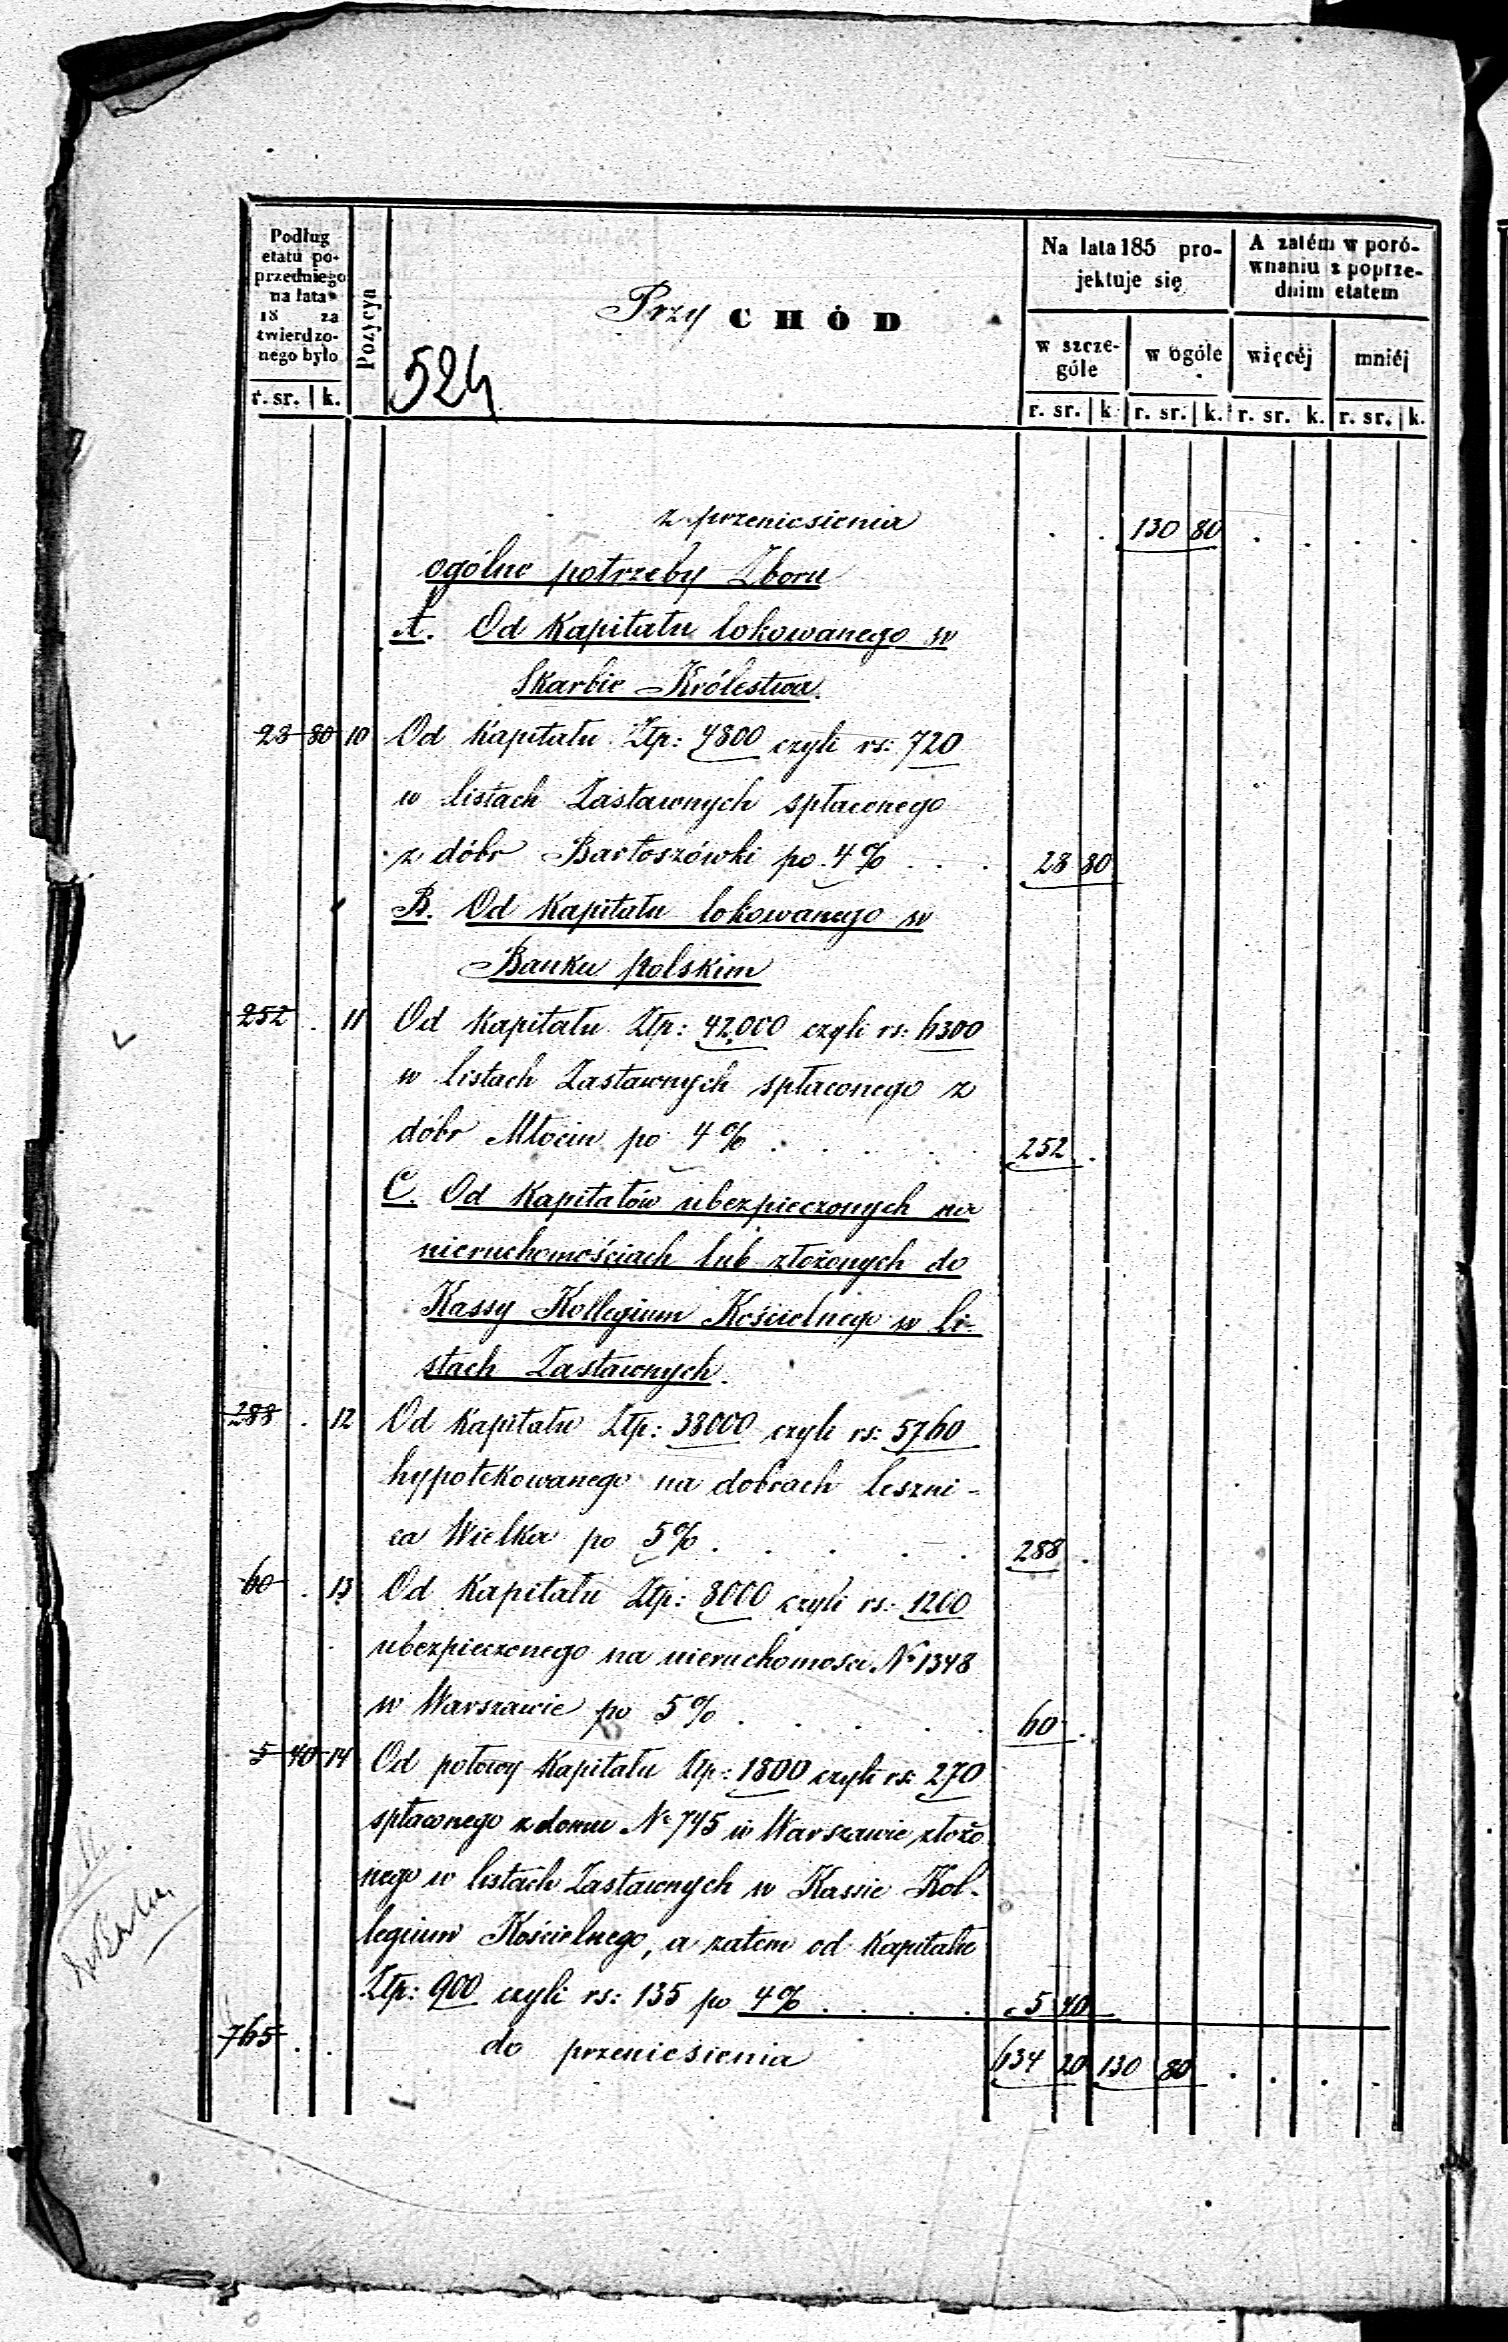 Podług
etatu po-
przedniego
na lata
18 za
twierdzo-
nego było
r. sr. k.
Pozycya
Przy CHÓD
524
Na lata 185 pro-
jektuje się
w szcze-
góle
w ogóle
r. sr. k. r. sr. k.
A zatém w poró-
wnaniu z poprze-
dnim etatem
więcéj mniéj
r. sr. k. r. sr. k.
z przeniesienia . . 130 80 . . . .
ogólne potrzeby Zboru
A. Od Kapitału lokowanego w
Skarbie Królestwa.
28 80 10 Od Kapitału Złp: 4800 czyli rs: 720
w listach Zastawnych spłaconego
z dóbr Bartoszówki po 4% . . . 28 80
B. Od Kapitału lokowanego w
Banku polskim
252 . 11 Od Kapitału Złp: 42,000 czyli rs: 6300
w listach Zastawnych spłaconego z
dóbr Młocin po 4% . . . . . 252 .
C. Od Kapitałów ubezpieczonych na
nieruchomościach lub złożonych do
Kassy Kollegium Kościelnego w Li-
stach Zastawnych.
288 . 12 Od Kapitału Złp: 38000 czyli rs: 5760
hypotekowanego na dobrach Leszni-
ca Wielka po 5% . . . . . 288 .
60 . 13 Od Kapitału Złp: 8000 czyli rs: 1200
ubezpieczonego na nieruchomości No 1348
w Warszawie po 5% . . . . . 60 .
5 40 14 Od połowy Kapitału Złp: 1800 czyli rs: 270
spłaconego z domu No 745 w Warszawie złożo
nego w listach Zastawnych w Kassie Kol-
legium Kościelnego, a zatem od Kapitału
Złp: 900 czyli rs: 135 po 4% . . . . 5 40
765 . . do przeniesienia 634 20 130 80 . . . .